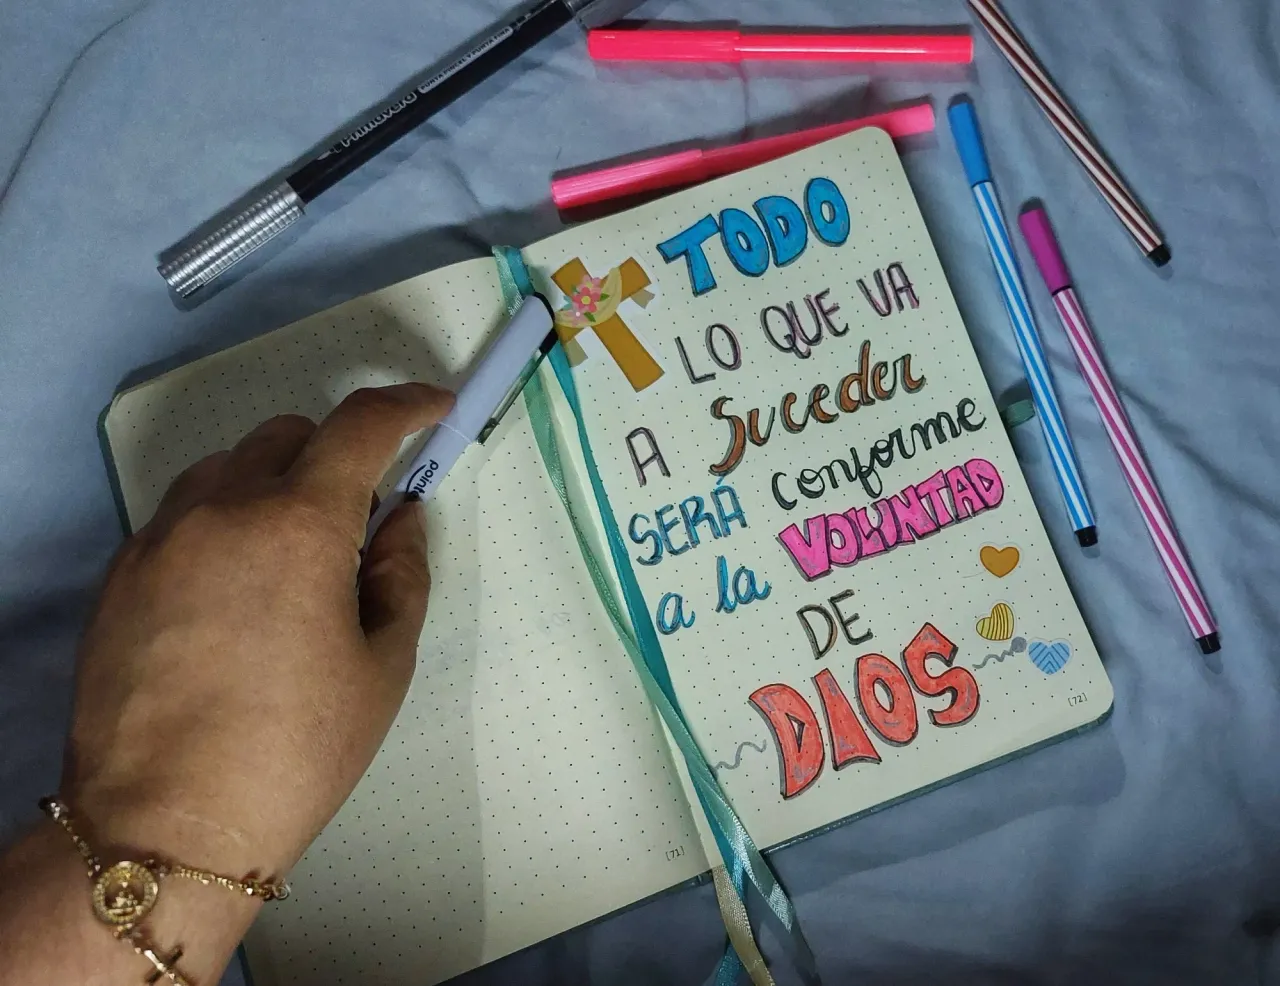 Primavera
TODO
LO QUE VA
A Suceder
SERÁ conforme
a la VOLUNTAD
DE
DIOS
[71]
[72]